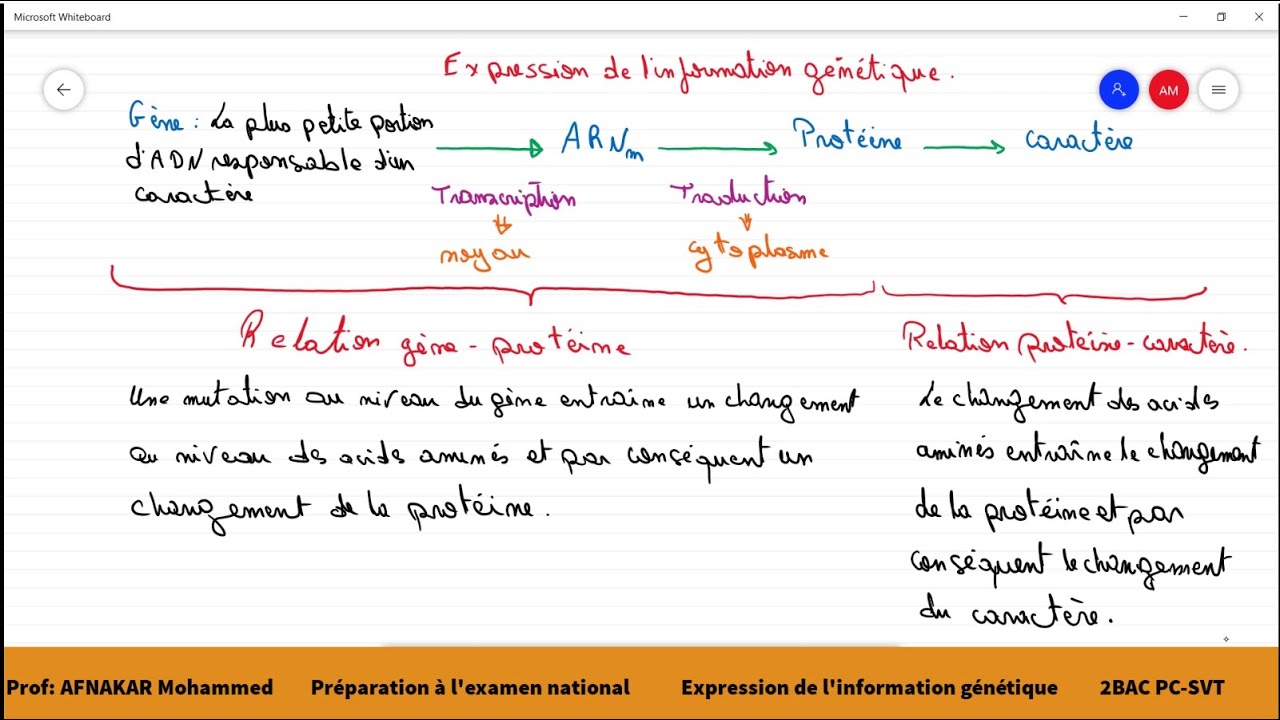 Microsoft Whiteboard
Expression de l'information génétique.
AM
Gène : La plus petite portion
d'ADN responsable d'un
caractère
ARNm
Protéine
caractère
Transcription
Traduction
noyau
cytoplasme
Relation gène - protéine
Relation protéine - caractère.
Une mutation au niveau du gène entraîne un changement
au niveau des acides aminés et par conséquent un
changement de la protéine.
Le changement des acides
aminés entraîne le changement
de la protéine et par
conséquent le changement
du caractère.
Prof: AFNAKAR Mohammed Préparation à l'examen national Expression de l'information génétique 2BAC PC-SVT